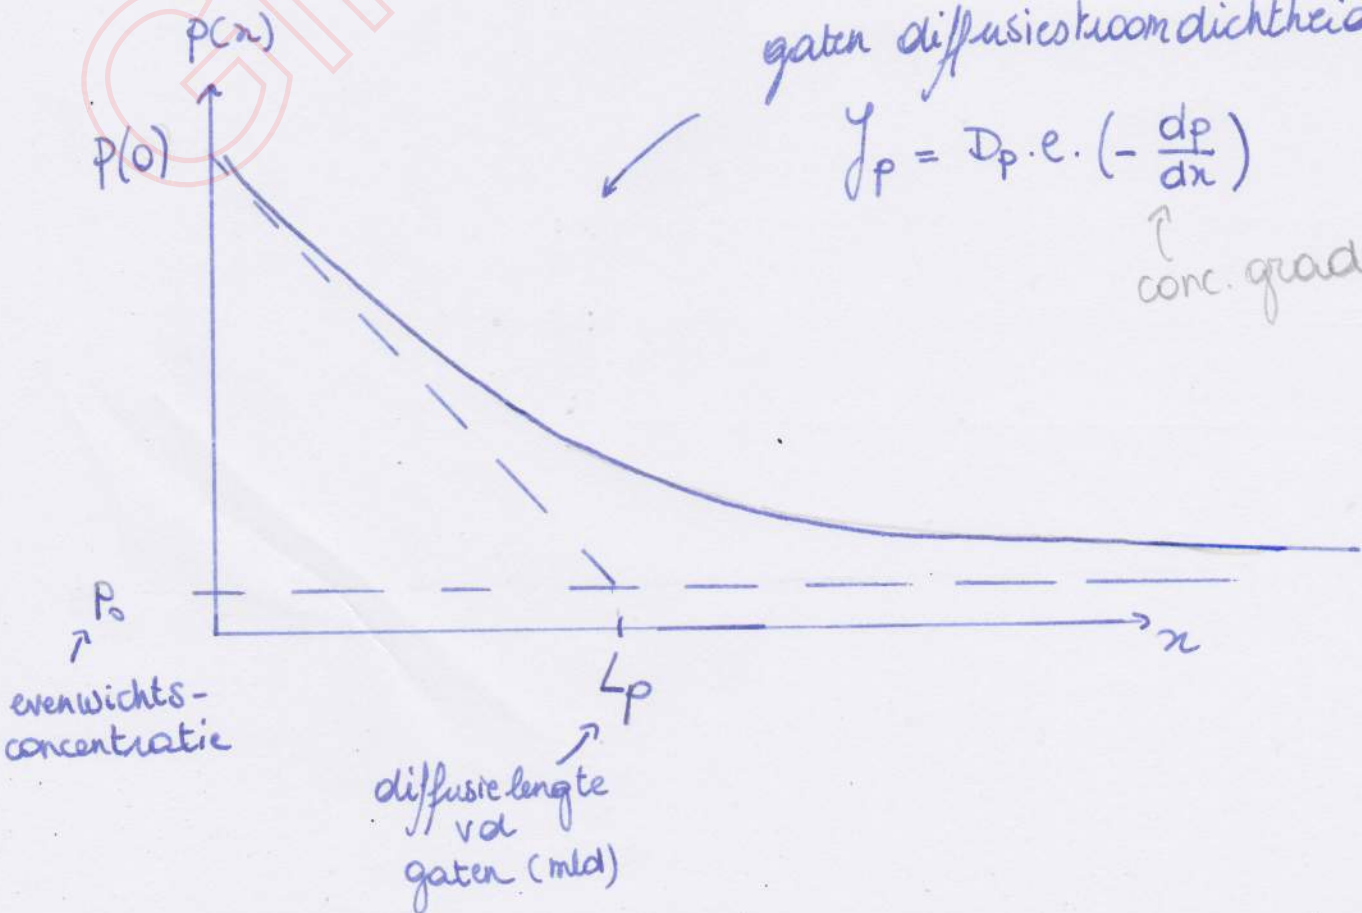 p(x)
gaten diffusiestroomdichtheid
p(0)
J_p = D_p . e . (- dp/dx)
conc. grad
p_0
x
evenwichts-
concentratie
L_p
diffusielengte
vd
gaten (mld)